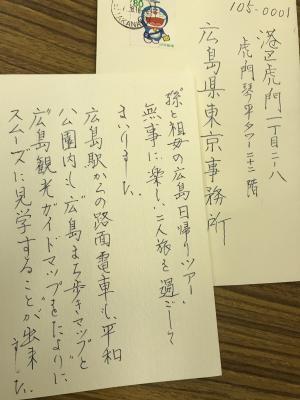 105-0001
港区虎門一丁目二-八
虎門琴平タワー二十二階
広島県東京事務所
80
孫と祖母の広島日帰りツアー、
無事に楽しい二人旅を過ごして
まいりました。
広島駅からの路面電車も、平和
公園内も「広島まち歩きマップと
広島観光ガイドマップをたよりに
スムーズに見学することが出来
ました。